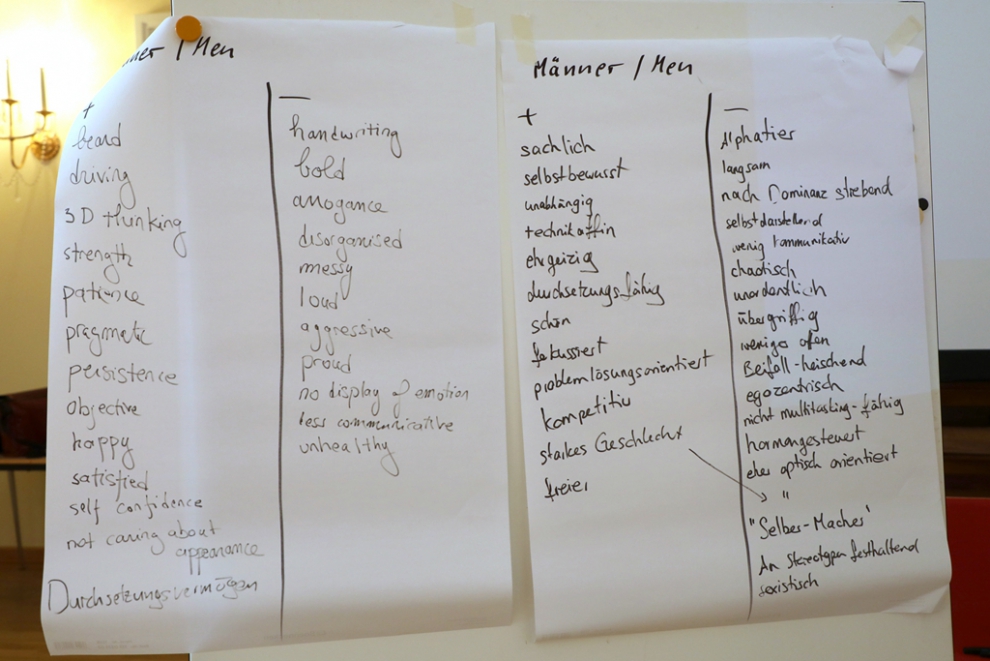 ner / Men
+
beard
driving
3D thinking
strength
patience
pragmatic
persistence
objective
happy
satisfied
self confidence
not caring about
appearance
Durchsetzungsvermögen
—
handwriting
bold
arrogance
disorganised
messy
loud
aggressive
proud
no display of emotion
less communicative
unhealthy
Männer / Men
+
sachlich
selbstbewusst
unabhängig
technikaffin
ehrgeizig
durchsetzungsfähig
schön
fokussiert
problemlösungsorientiert
kompetitiv
starkes Geschlecht
freier
—
Alphatier
langsam
nach Dominanz strebend
selbstdarstellend
wenig kommunikativ
chaotisch
unordentlich
übergriffig
weniger offen
Beifall-heischend
egozentrisch
nicht multitasking-fähig
hormongesteuert
eher optisch orientiert
"
"Selber-Macher"
An Stereotypen festhaltend
sexistisch